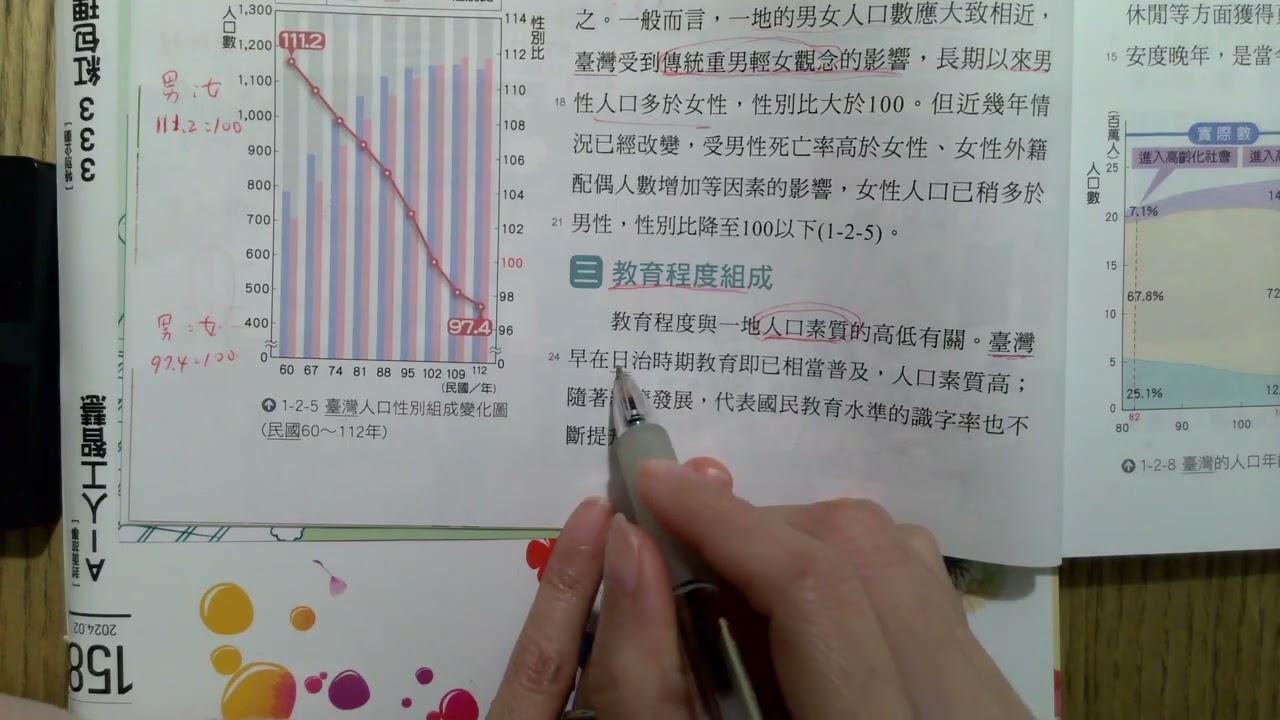 人口數
1,300
1,200
1,100
1,000
900
800
700
600
500
400
0
性別比
114
112
110
108
106
104
102
100
98
96
0
111.2
97.4
60 67 74 81 88 95 102 109 112
(民國／年)
1-2-5 臺灣人口性別組成變化圖
(民國60～112年)
男:女
111.2=100
男:女
97.4=100
之。一般而言，一地的男女人口數應大致相近，
臺灣受到傳統重男輕女觀念的影響，長期以來男
18 性人口多於女性，性別比大於100。但近幾年情
況已經改變，受男性死亡率高於女性、女性外籍
配偶人數增加等因素的影響，女性人口已稍多於
21 男性，性別比降至100以下(1-2-5)。
三 教育程度組成
教育程度與一地人口素質的高低有關。臺灣
24 早在日治時期教育即已相當普及，人口素質高；
隨著 發展，代表國民教育水準的識字率也不
斷提
休閒等方面獲得
15 安度晚年，是當
(百萬人)
人口數
實際數
進入高齡化社會
進入
25
20
15
10
5
0
7.1%
67.8%
25.1%
14
72
82
80 90 100
1-2-8 臺灣的人口年
理包紅 3 3 3
A－人工智慧
2024.02
158